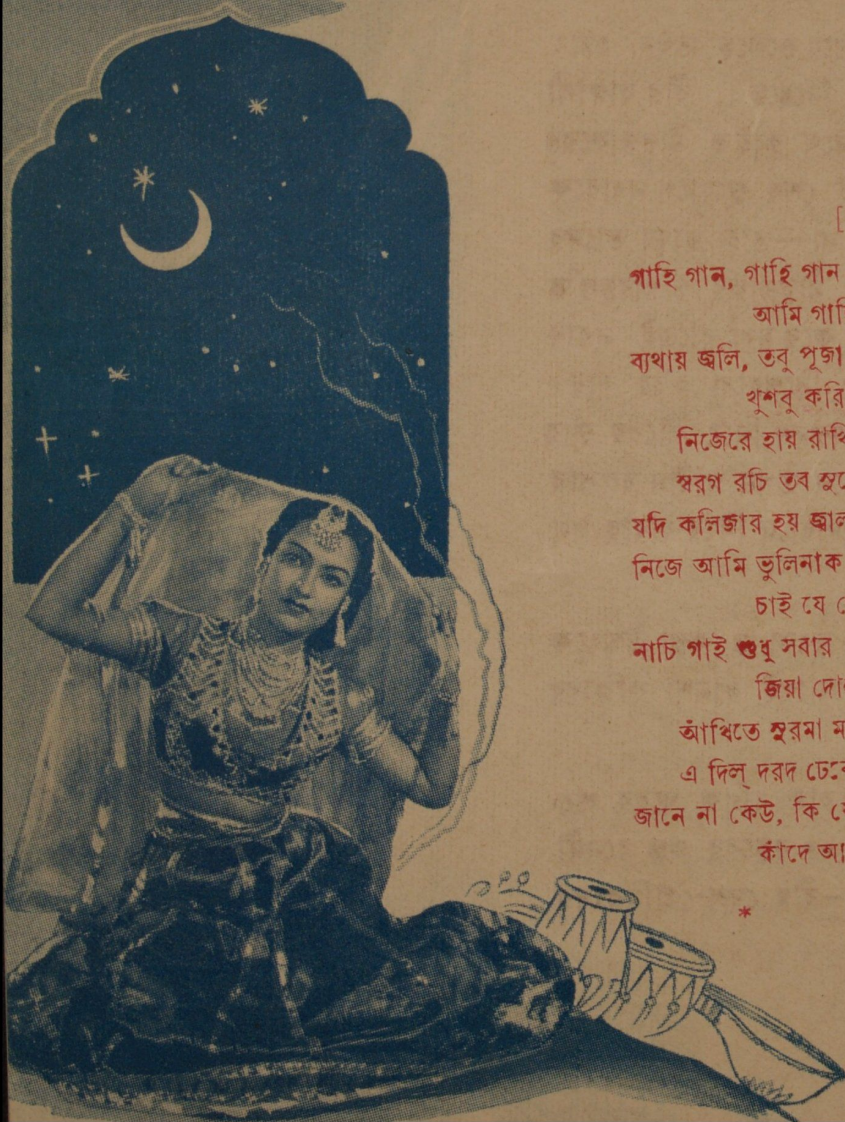 [
গাহি গান, গাহি গান
আমি গাহি
ব্যথায় জ্বলি, তবু পূজা
খুশবু করি
নিজেরে হায় রাখি
স্বরগ রচি তব
যদি কলিজার হয়
নিজে আমি ভুলিনাক
চাই যে
নাচি গাই শুধু সবার
জিয়া
আঁখিতে সুরমা
এ দিল্ দরদ
জানে না কেউ, কি
কাঁদে
*